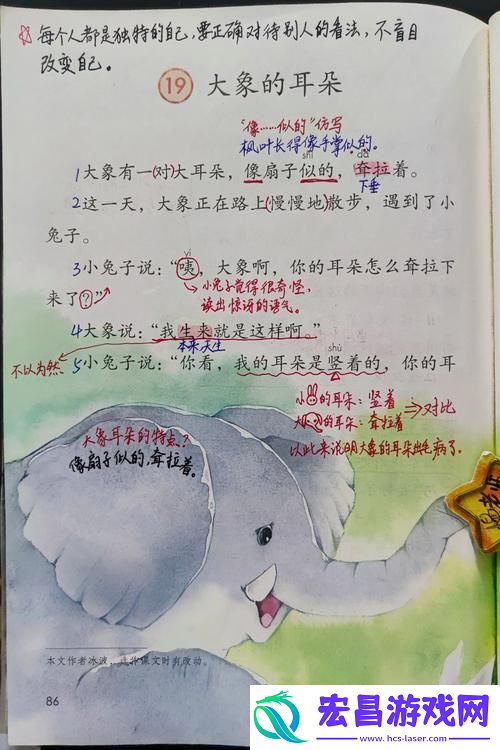 每个人都是独特的自己,要正确对待别人的看法,不盲目
改变自己。
19 大象的耳朵
“像……似的”仿写
枫叶长得像手掌似的。
shì dā
1大象有一(对)大耳朵,像扇子似的,耷拉着。
下垂
2这一天,大象正在路上(慢慢地)散步,遇到了小
兔子。
yí
3小兔子说:“咦,大象啊,你的耳朵怎么耷拉下
来了?”
小兔子觉得很奇怪,
读出惊讶的语气。
4大象说:“我生来就是这样啊。”
不以为然
本来天生
shù
5小兔子说:“你看,我的耳朵是竖着的,你的耳
小 的耳朵:竖着
大 的耳朵:耷拉着
⇒对比
以此来说明大象的耳朵出毛病了。
大象耳朵的特点?
像扇子似的,耷拉着。
本文作者冰波,选作课文时有改动。
86
宏昌游戏网
www.hcs-laser.com